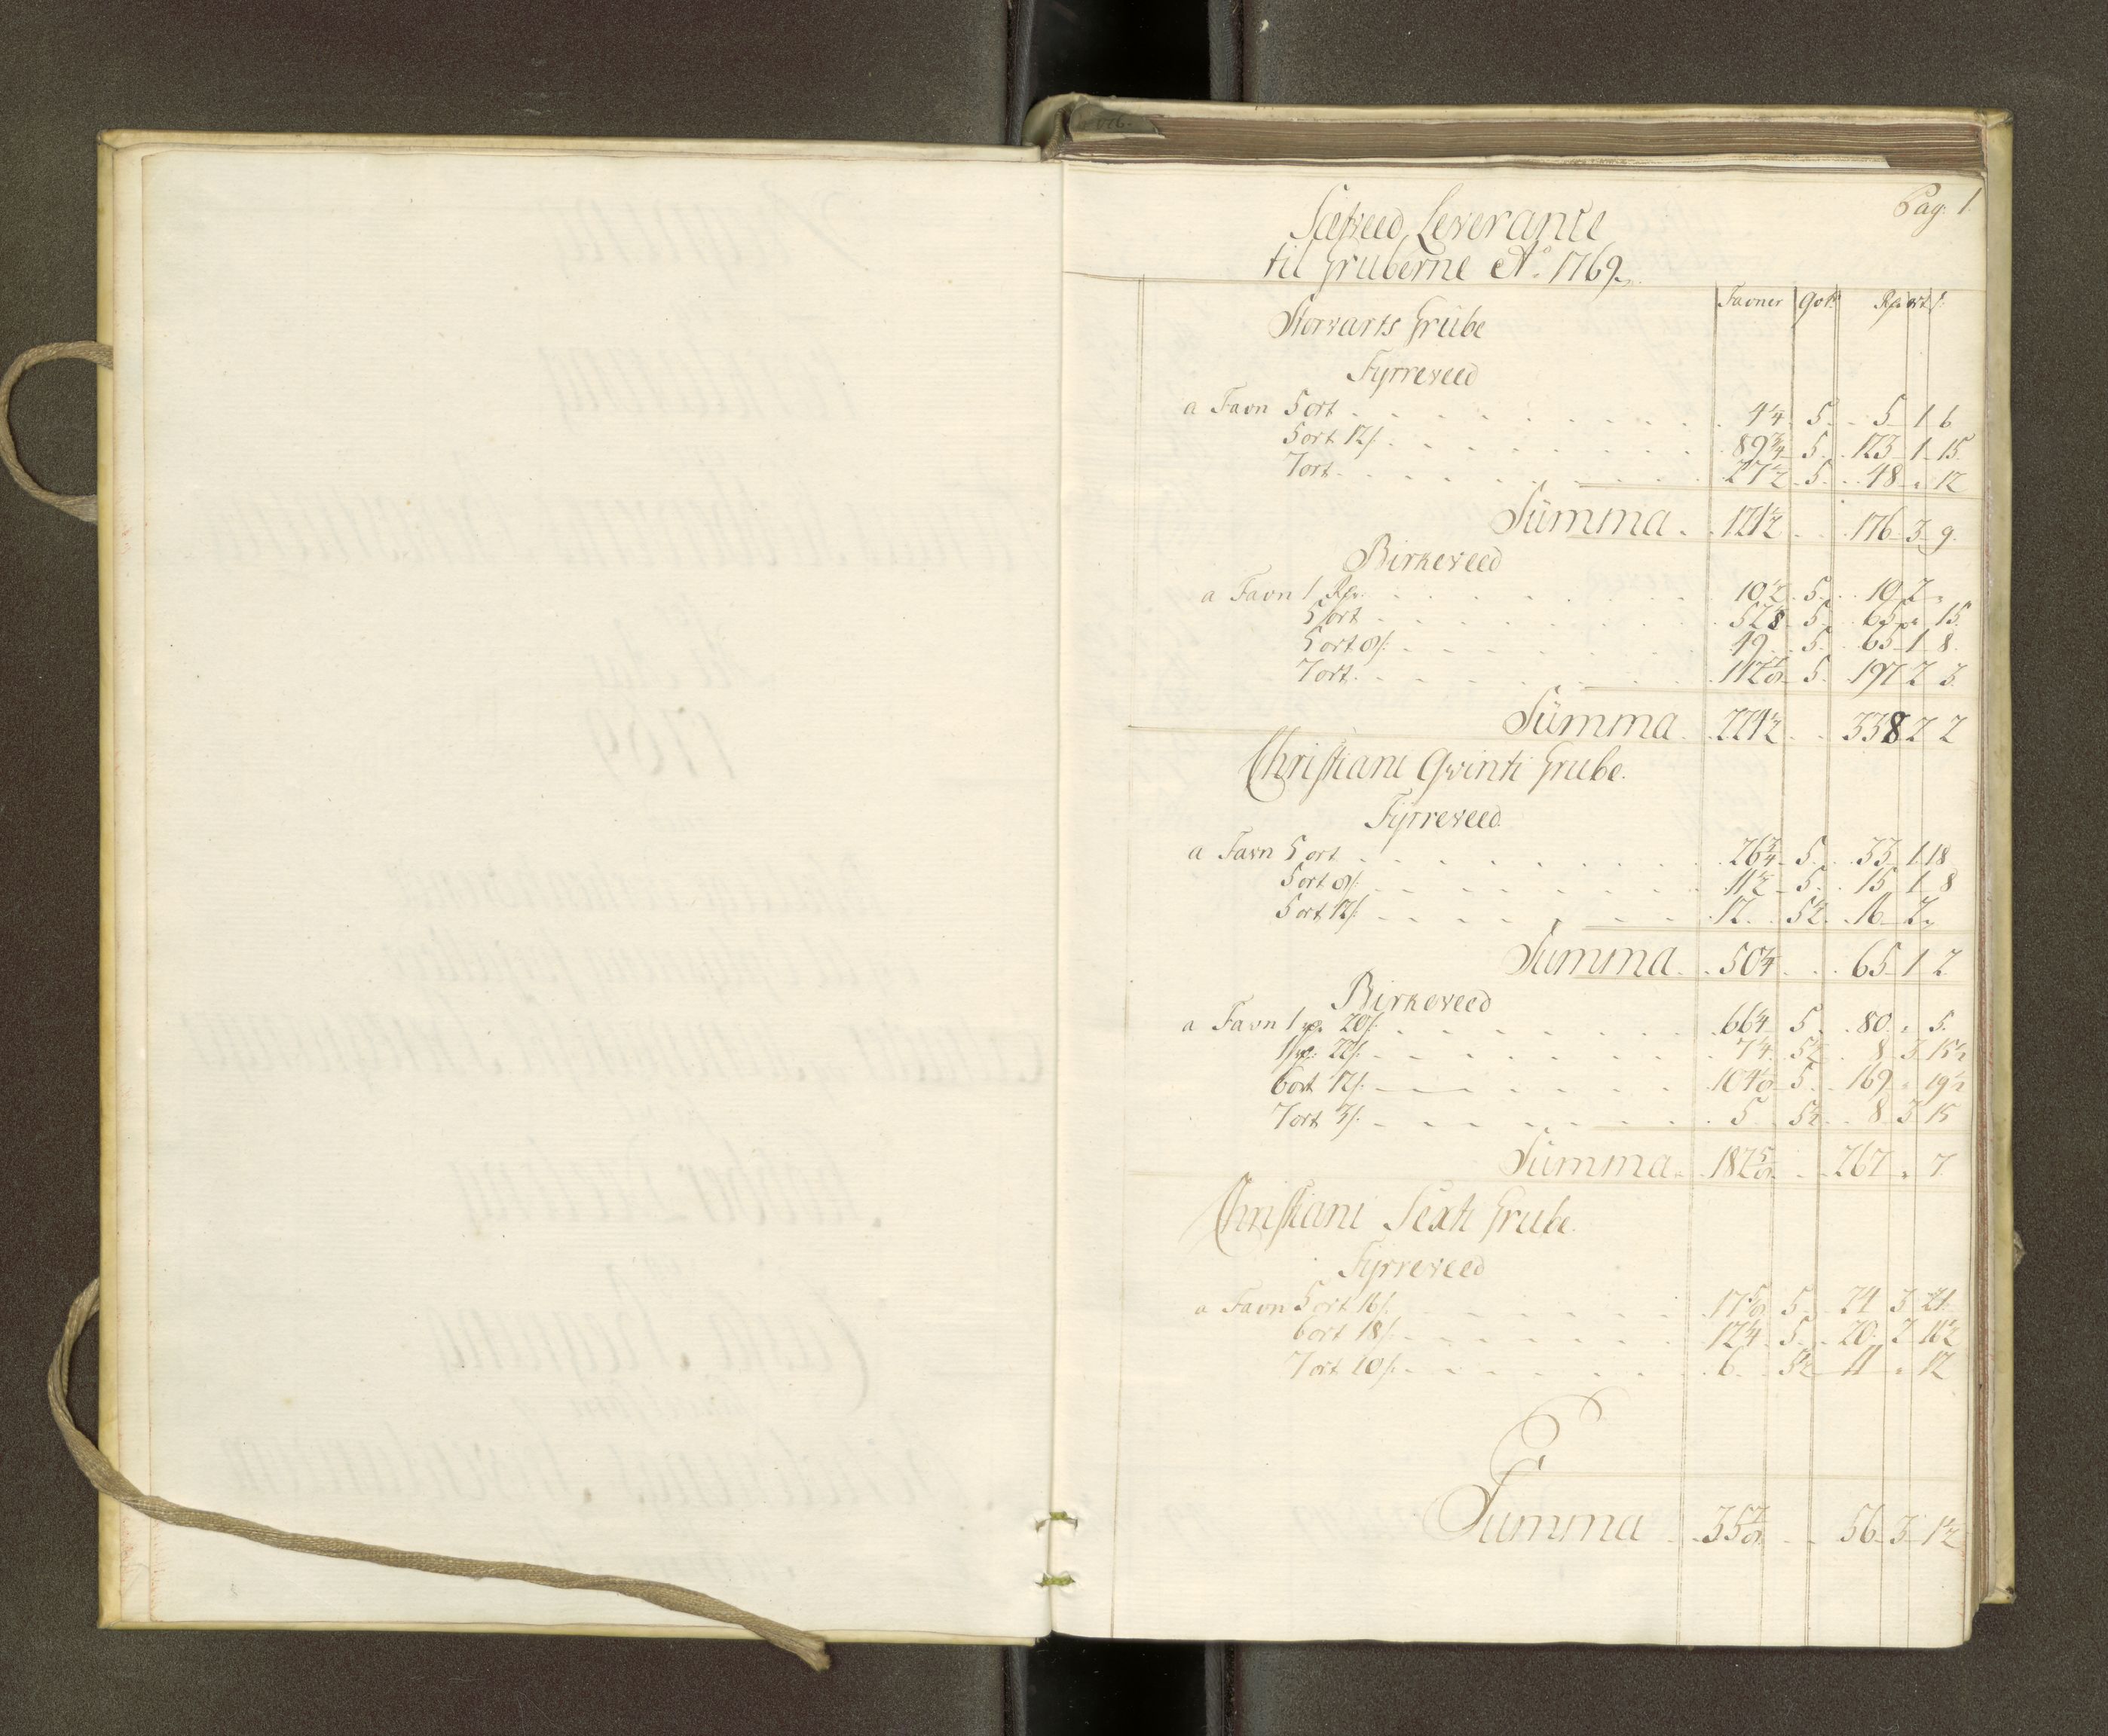 Pag: 1
Sætveed Leverance
til Gruberne Aº 1769
Favner Qvt: Rdr ort s:
Storvarts Grube
Fyrreveed
a Favn 5 ort 4 1/4 5 5 1 6
5 ort 12 s: 89 3/4 5 123 1 15
7 ort 27 1/2 5 48 " 12
Summa 121 1/2 176 3 9
Birkeveed
a Favn 1 Rdr 10 1/2 5 10 2 "
5 ort 52 1/8 5 65 " 15
5 ort 8 s: 49 5 65 1 8
7 ort 112 7/8 5 197 2 3
Summa 224 1/2 338 2 2
Christiani Qvinti Grube
Fyrreveed
a Favn 5 ort 26 3/4 5 33 1 18
5 ort 8 s: 11 1/2 5 15 1 8
5 ort 12 s: 12 5 1/2 16 2 "
Summa 50 1/4 65 1 2
Birkeveed
a Favn 1 rdr 20 s: 66 1/4 5 80 " 5
1 rdr 22 s: 7 1/4 5 1/2 8 3 15 1/2
6 ort 12 s: 104 1/8 5 169 " 19 1/2
7 ort 3 s: 5 5 1/2 8 3 15
Summa 182 5/8 267 " 7
Christiani Sexti Grube
Fyrreveed
a Favn 5 ort 16 s: 17 5/8 5 24 3 21
6 ort 18 s: 12 1/4 5 20 2 16 1/2
7 ort 10 s: 6 5 1/2 11 " 12
Summa 35 7/8 56 3 1 1/2